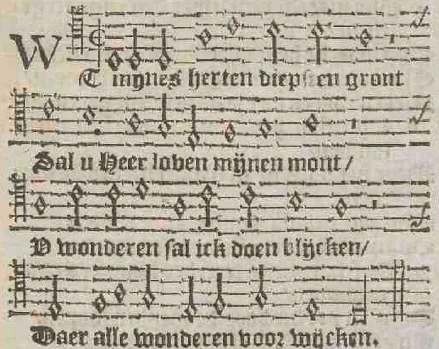 WT mynes herten diepsten gront
Sal u Heer loven mijnen mont /
V wonderen sal ick doen blijcken/
Daer alle wonderen voor wijcken.